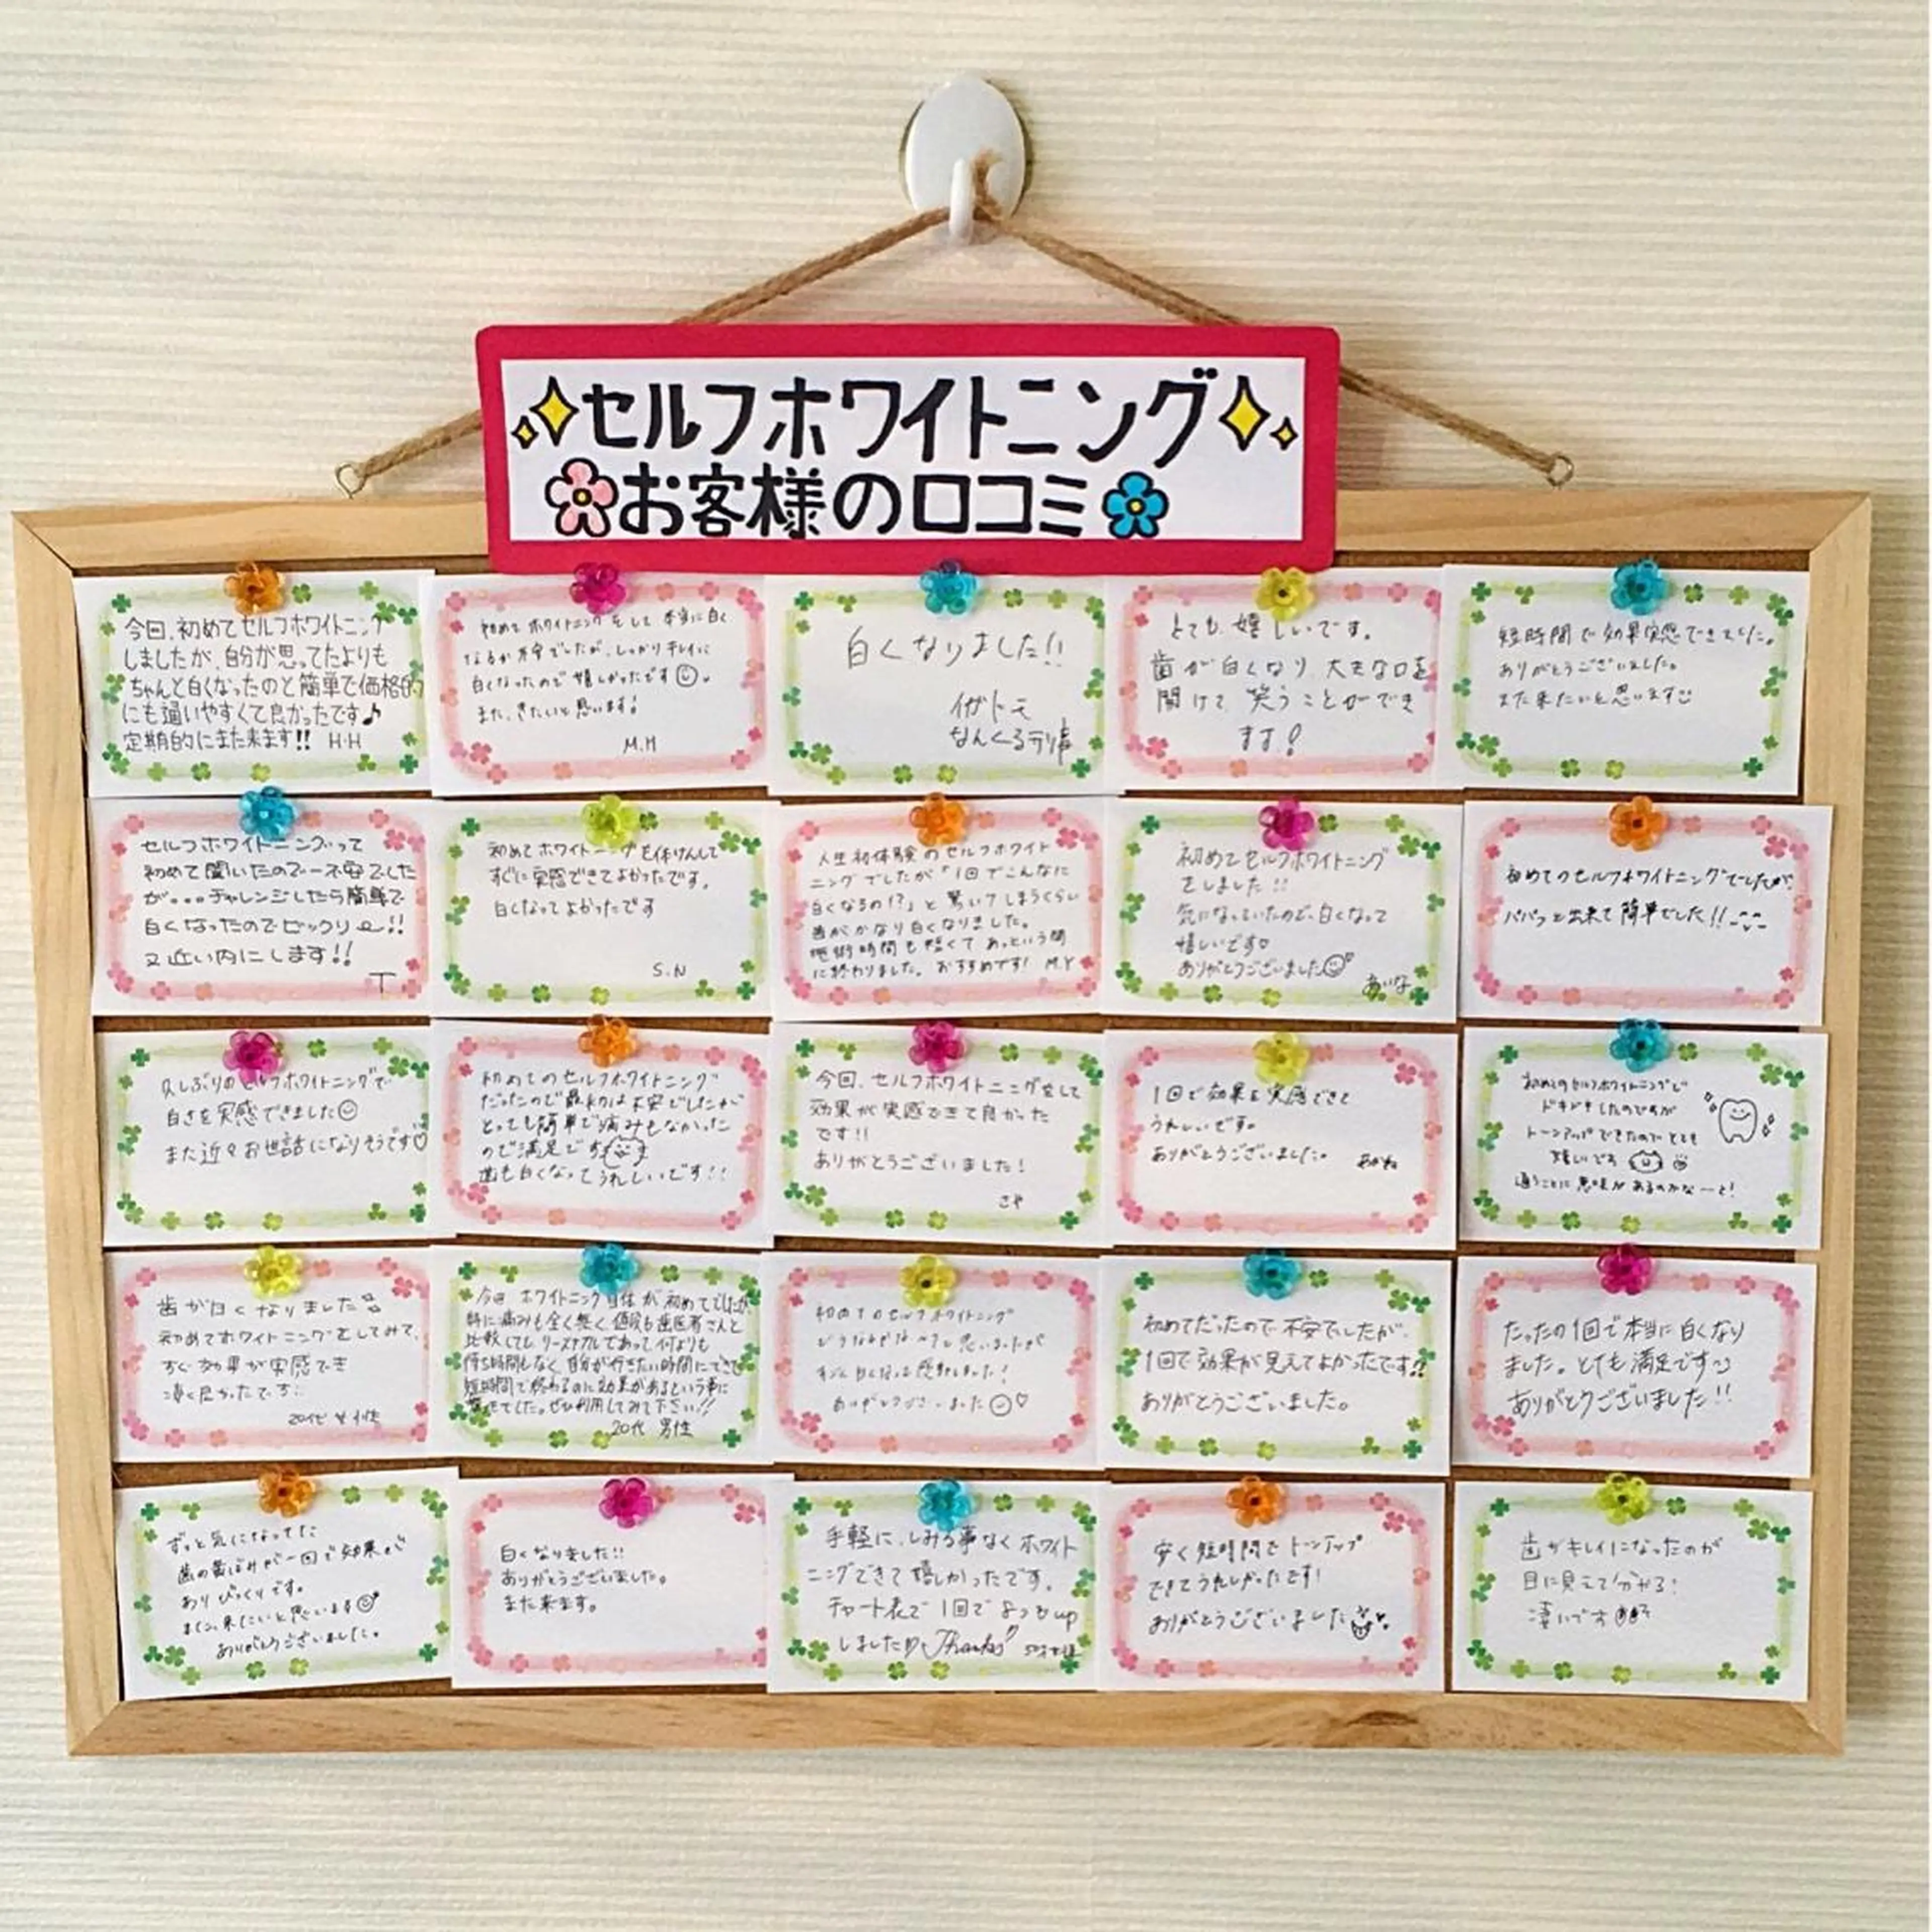 セルフホワイトニング
お客様の口コミ
今回、初めてセルフホワイトニング
しましたが、自分が思ってたよりも
ちゃんと白くなったのと簡単で価格的
にも通いやすくて良かったです♪
定期的にまた来ます!! H・H
初めてホワイトニングをして本当に白く
なるか不安でしたが、しっかりキレイに
白くなったので嬉しかったです
また、きたいと思います!
M.H
白くなりました!!
イガトモ
なんくる
とても嬉しいです。
歯が白くなり、大きな口を
開けて笑うことができ
ます!
短時間で効果実感できました。
ありがとうございました。
また来たいと思います
セルフホワイトニングって
初めて聞いたので…不安でした
が...チャレンジしたら簡単で
白くなったのでビックリ!!
又近い内にします!!
T
初めてホワイトニングを体けんして
すぐに実感できてよかったです。
白くなってよかったです
S.N
人生初体験のセルフホワイト
ニングでしたが「1回でこんなに
白くなるの!?」と驚いてしまうくらい
歯がかなり白くなりました。
施術時間も軽くてあっという間
に終わりました。おすすめです! M.Y
初めてセルフホワイトニング
をしました!!
気になっていたので、白くなって
嬉しいです♡
ありがとうございました
あいな
初めてのセルフホワイトニングでしたが、
パパっと出来て簡単でした!!
久しぶりのセルフホワイトニングで
白さを実感できました
また近々お世話になりそうです♡
初めてのセルフホワイトニング
だったので最初は不安でしたが
とっても簡単で痛みもなかった
ので満足です
歯も白くなってうれしいです!!
今回、セルフホワイトニングをして
効果が実感できて良かった
です!!
ありがとうございました!
さや
1回で効果を実感できて
うれしいです。
ありがとうございました。 あかね
初めてのセルフホワイトニングで
ドキドキしたのですが
トーンアップできたのでとても
嬉しいです
通うことに意味があるのかな~と!
歯が白くなりました
初めてホワイトニングをしてみて、
すぐ効果が実感でき
凄く良かったです
20代女性
今回 ホワイトニング自体が初めてでしたが
特に痛みも全く無く、値段も歯医者さんと
比較してもリーズナブルであって何よりも
待ち時間もなく、自分が行きたい時間にできて
短時間で終わるのに効果があるという事に
でした。ぜひ利用してみて下さい!!
20代 男性
初めてのセルフホワイトニング
どうなるかなぁ?と思いましたが
すごく白くなって感動しました!
ありがとうございました♡
初めてだったので不安でしたが、
1回で効果が見えてよかったです!!
ありがとうございました。
たったの1回で本当に白くなり
ました。とても満足です
ありがとうございました!!
ずっと気になってた
歯の黄ばみが一回で効果が
ありびっくりです。
また、来たいと思います
ありがとうございました。
白くなりました!!
ありがとうございました。
また来ます。
手軽に、しみる事なくホワイト
ニングできて嬉しかったです。
チャート表で1回で8つもup
しました Thanks!!
安く短時間でトーンアップ
できてうれしかったです!
ありがとうございました
歯がキレイになったのが
目に見えて分かる!
凄いです